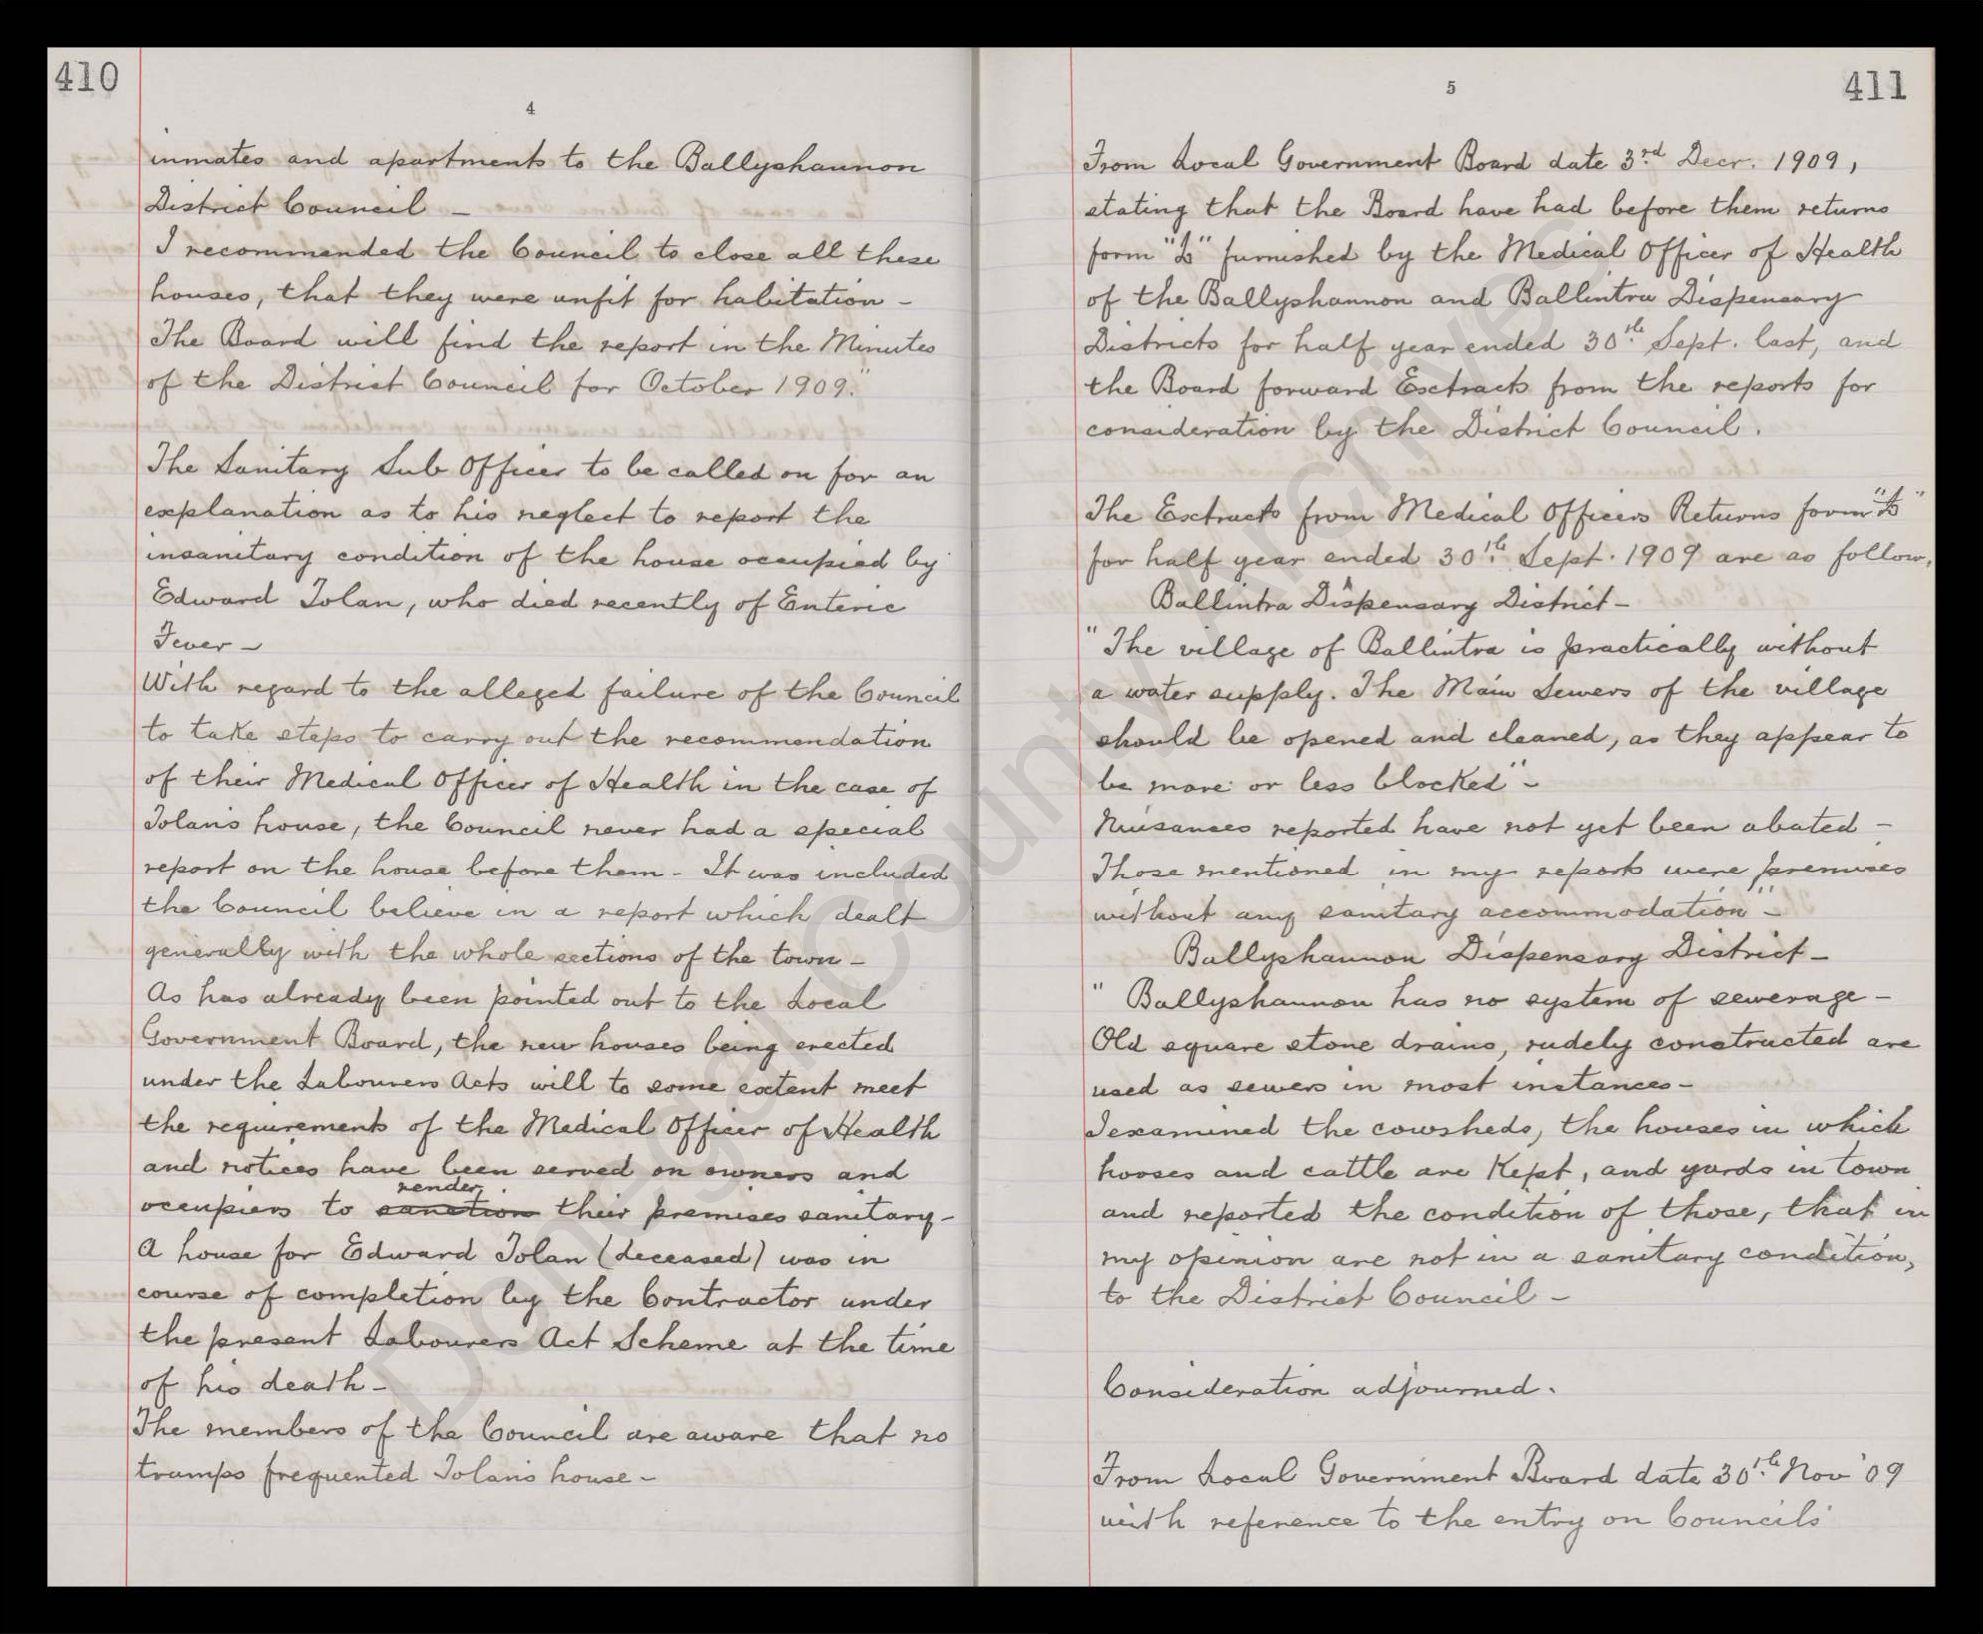 410
4
inmates and apartments to the Ballyshannon
District Council –
I recommended the Council to close all these
houses, that they were unfit for habitation –
The Board will find the report in the Minutes
of the District Council for October 1909."
The Sanitary Sub Officer to be called on for an
explanation as to his neglect to report the
insanitary condition of the house occupied by
Edward Tolan, who died recently of Enteric
Fever –
With regard to the alleged failure of the Council
to take steps to carry out the recommendation
of their Medical Officer of Health in the case of
Tolans house, the Council never had a special
report on the house before them – It was included
the Council believe in a report which dealt
generally with the whole sections of the town –
As has already been pointed out to the Local
Government Board, the new houses being erected
under the Labourers Acts will to some extent meet
the requirements of the Medical Officer of Health
and notices have been served on owners and
render
occupiers to sanction their premises sanitary –
A house for Edward Tolan (deceased) was in
course of completion by the Contractor under
the present Labourers Act Scheme at the time
of his death –
The members of the Council are aware that no
tramps frequented Tolans house –
411
5
From Local Government Board date 3rd Decr. 1909,
stating that the Board have had before them returns
form "" furnished by the Medical Officer of Health
of the Ballyshannon and Ballintra Dispensary
Districts for half year ended 30th Sept. last, and
the Board forward Exctracts from the reports for
consideration by the District Council.
The Exctracts from Medical Officers Returns form ""
for half year ended 30th Sept. 1909 are as follow,
Ballintra Dispensary District –
"The village of Ballintra is practically without
a water supply. The Main Sewers of the village
should be opened and cleaned, as they appear to
be more or less blocked" –
Nuisances reported have not yet been abated –
Those mentioned in my reports were premises
without any sanitary accommodation" –
Ballyshannon Dispensary District –
" Ballyshannon has no system of sewerage –
Old square stone drains, rudely constructed are
used as sewers in most instances –
I examined the cowsheds, the houses in which
hooses and cattle are kept, and yards in town
and reported the condition of those, that in
my opinion are not in a sanitary condition,
to the District Council –
Consideration adjourned.
From Local Government Board date 30th Nov '09
with reference to the entry on Councils
Donegal County Archives